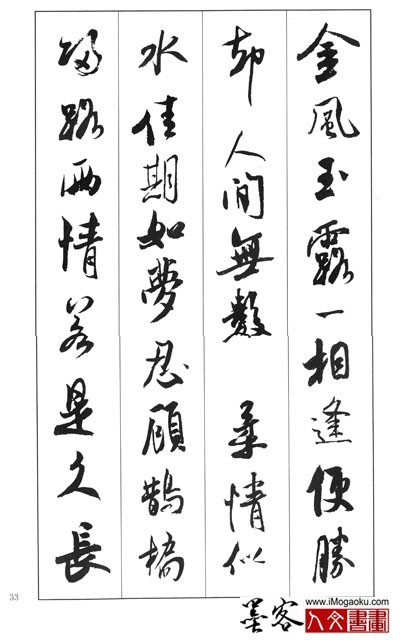 金風玉露一相逢便勝
却 人間無數 柔情似
水佳期如夢忍顧鵲橋
歸路兩情若是久長
33
www.iMogaoku.com
墨客